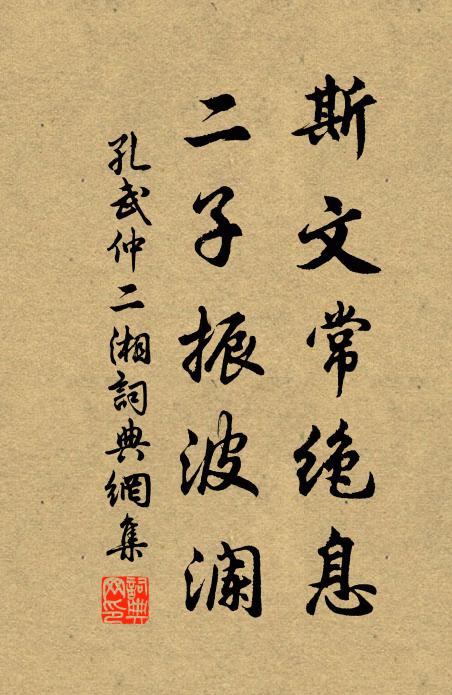 斯文常绝息
二子振波澜
孔武仲二湘詞典網集
詞典网印